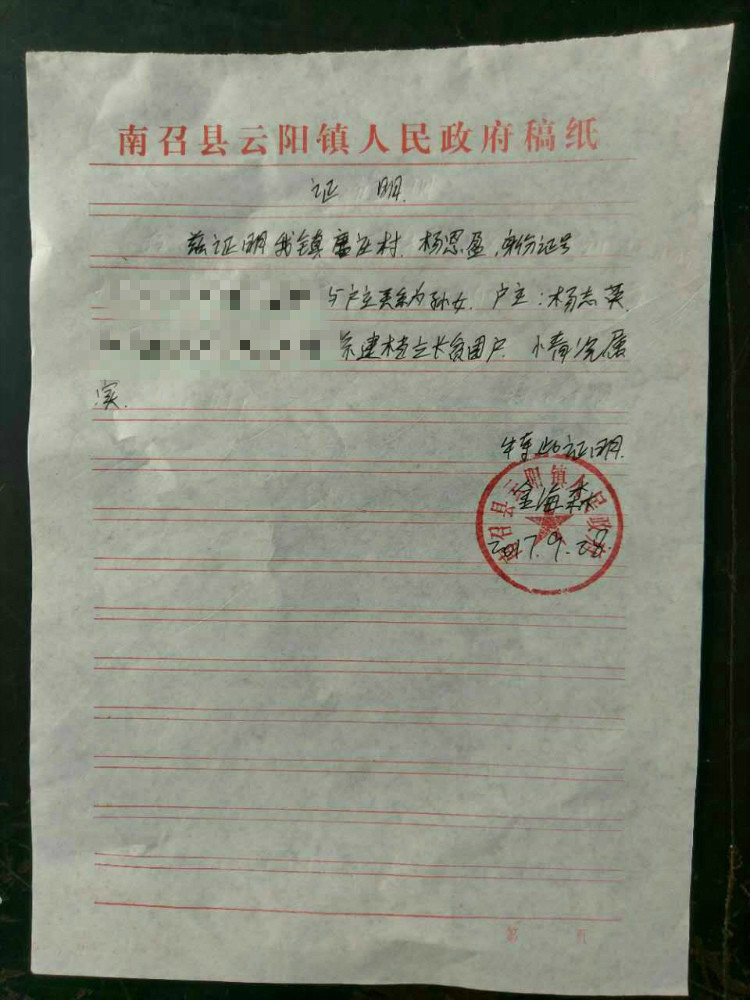 南召县云阳镇人民政府稿纸
证 明
兹证明我镇唐庄村 杨恩盈,身份证号
与户主关系为孙女. 户主:杨志英
系建档立卡贫困户 情况属
实.
特此证明.
南召县云阳镇人民政府
金海森
2017.9.28
第 页